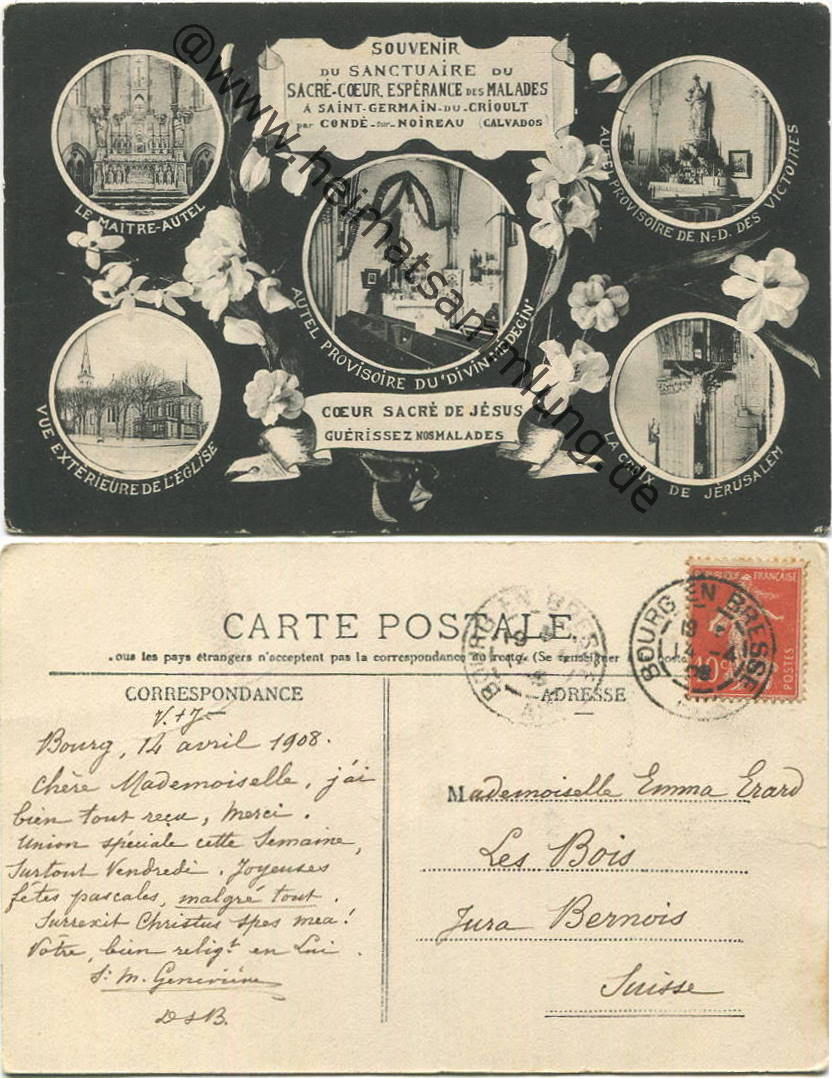 SOUVENIR
DU SANCTUAIRE DU
SACRÉ-CŒUR, ESPÉRANCE DES MALADES
À SAINT-GERMAIN-DU-CRIOULT
par CONDÉ-sur-NOIREAU (CALVADOS)
LE MAITRE-AUTEL
AUTEL PROVISOIRE DE N.-D. DES VICTOIRES
AUTEL PROVISOIRE DU "DIVIN MÉDECIN"
VUE EXTÉRIEURE DE L'ÉGLISE
CŒUR SACRÉ DE JÉSUS
GUÉRISSEZ NOS MALADES
LA CROIX DE JÉRUSALEM
@www.heimatsammlung.de
CARTE POSTALE
ous les pays étrangers n'acceptent pas la correspondance au recto. (Se renseigner
CORRESPONDANCE
ADRESSE
BOURG EN BRESSE
BOURG EN BRESSE
19
14 - 4
08
RÉPUBLIQUE FRANÇAISE
10
POSTES
V. + J.
Bourg, 14 avril 1908.
Chère Mademoiselle, j'ai
bien tout reçu, Merci.
Union spéciale cette Semaine,
Surtout Vendredi. Joyeuses
fêtes pascales, malgré tout.
Surrexit Christus spes mea!
Votre, bien religt en Lui.
Sr M. Geneviève
D S B.
Mademoiselle Emma Erard
Les Bois
Jura Bernois
Suisse